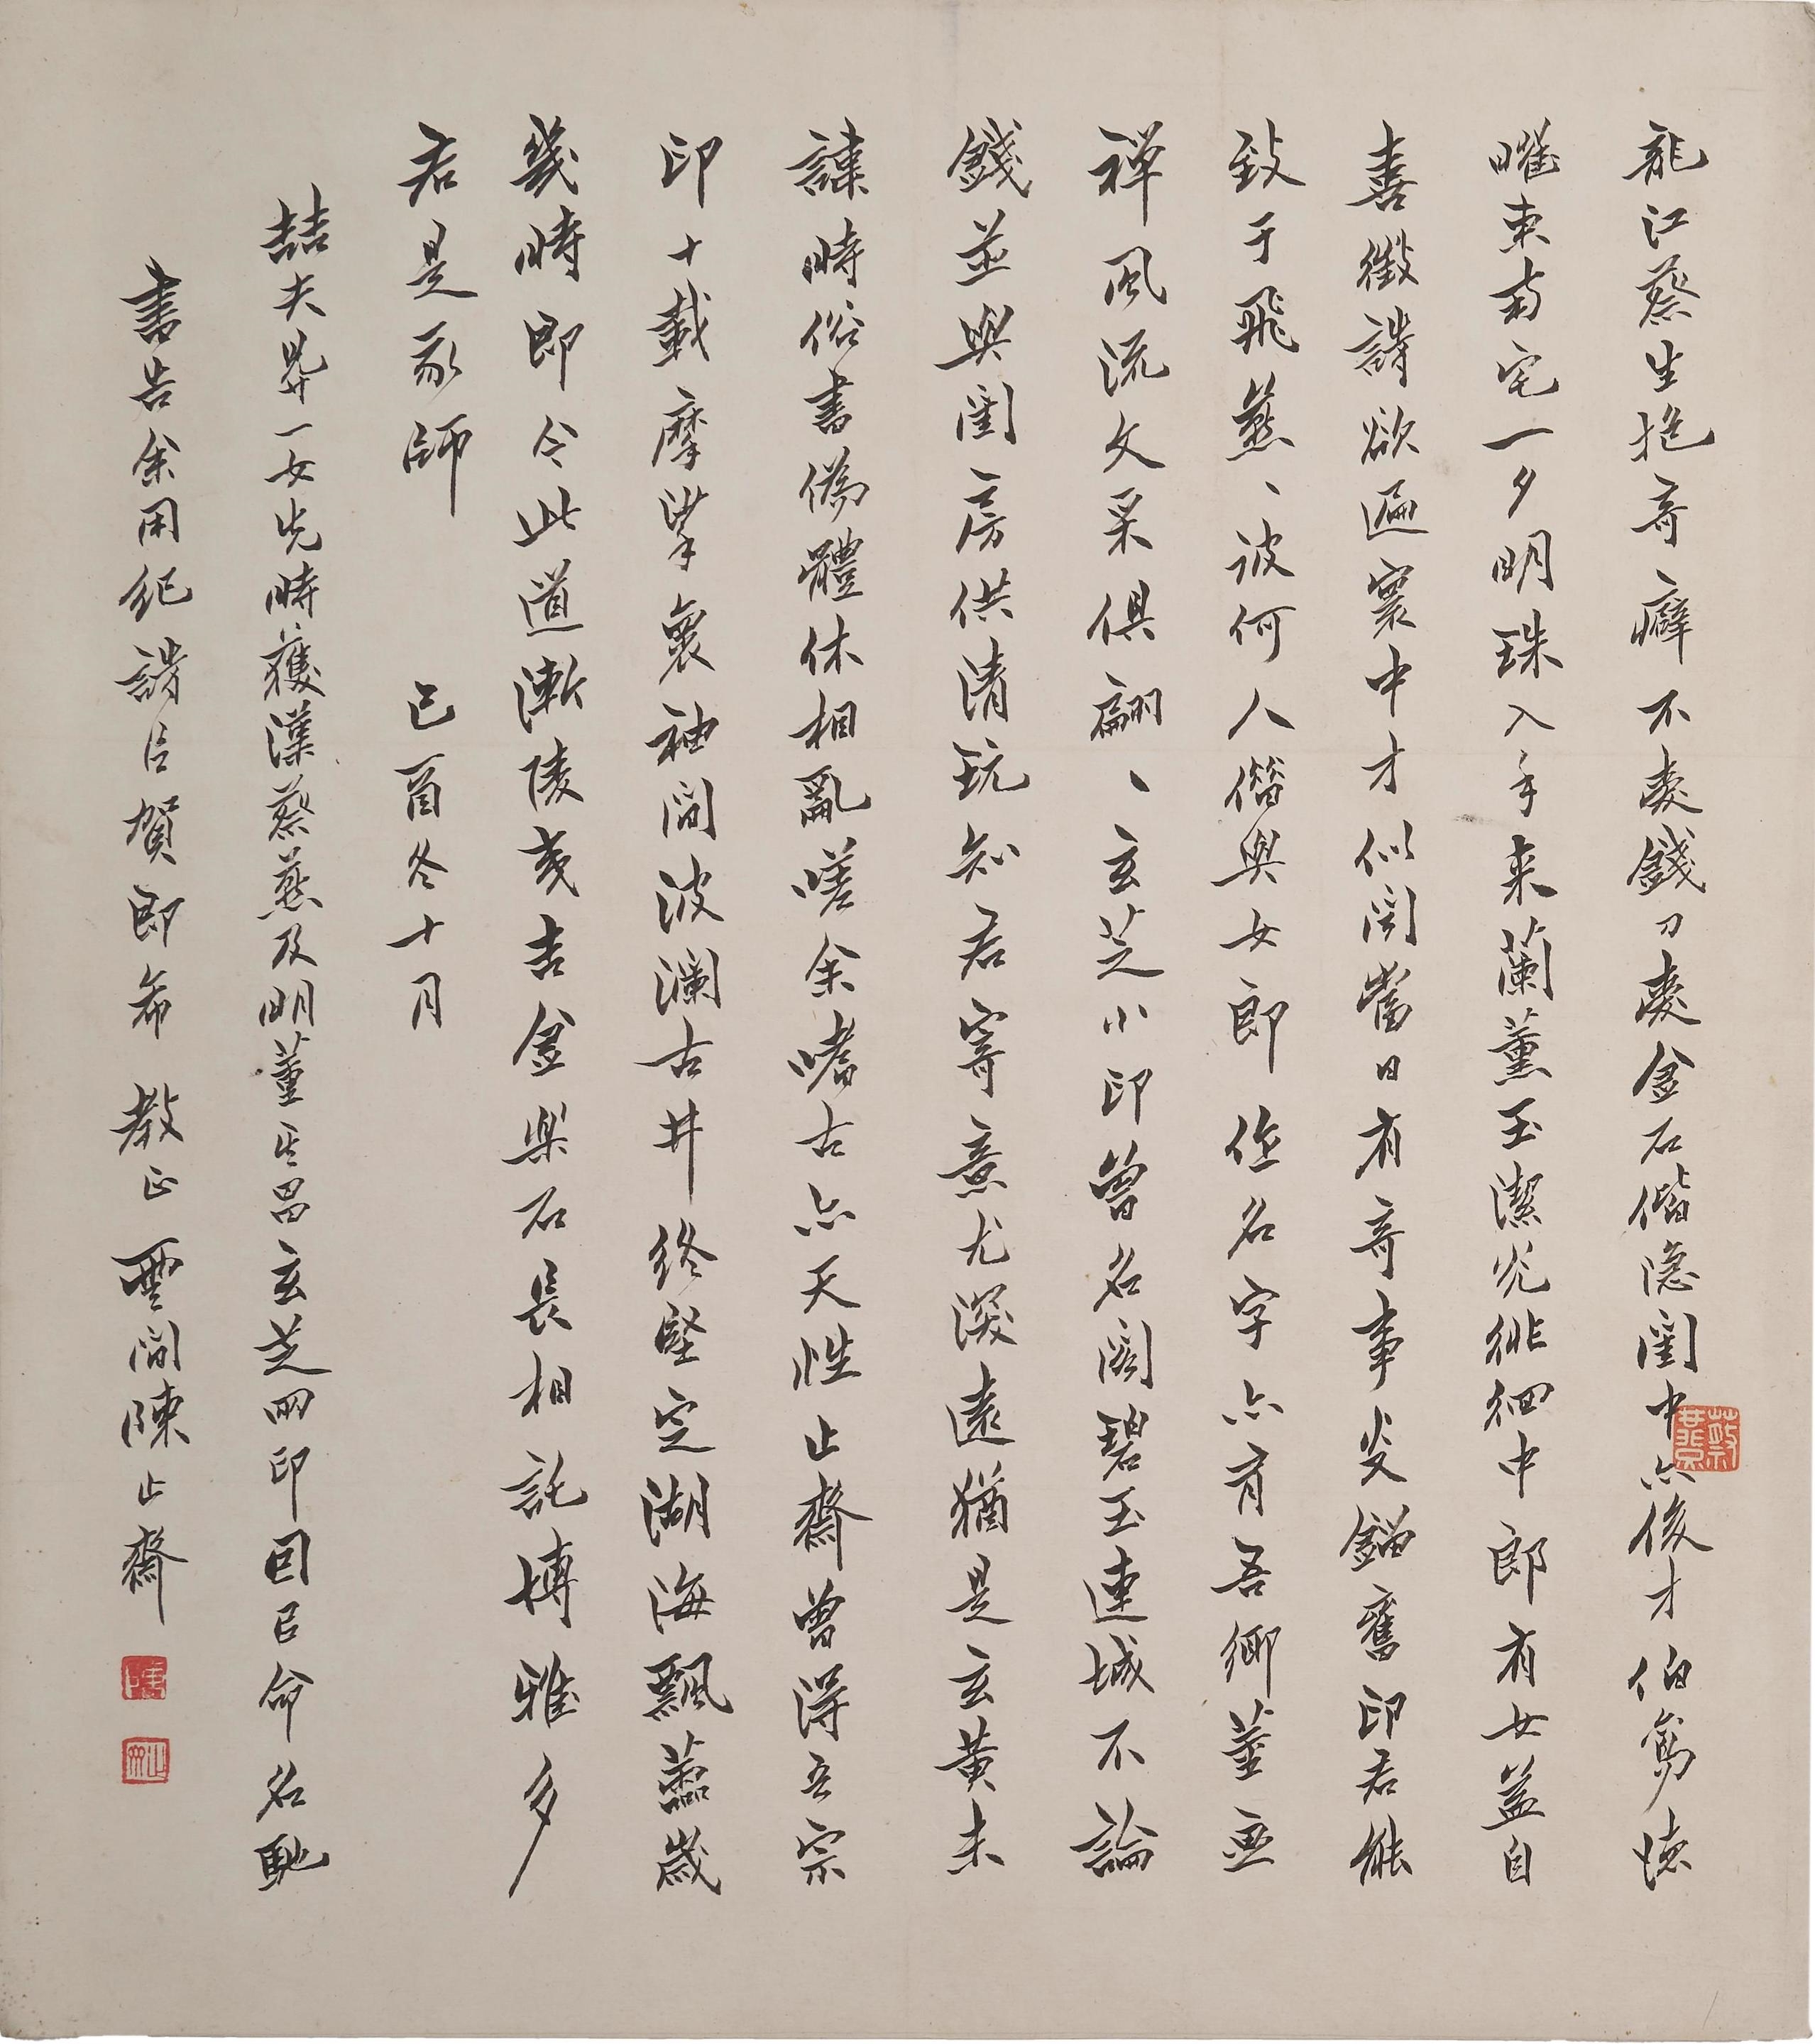 龍江蔡生抱奇癖不愛錢刀愛金石偕隱閨中亦俊才伯鸞德
曜東南宅一夕明珠入手來蘭薰玉潔光徘徊中郎有女益自
喜徵詩欲遍寰中才似聞當日有奇事爻鈕舊印君能
致于飛燕、彼何人偕與女郎作名字亦有吾鄉董畫
禪風流文采俱翩、玄芝小印曾名閣碧玉連城不論
錢並與閨房供清玩知君寄意尤深遠猶是玄黃未
諫時俗書偽體休相亂嗟余嗜古亦天性止齋曾得吾宗
印十載摩挲裏袖間波瀾古井終堅定湖海飄蕭歲
幾時即今此道漸陵夷吉金樂石長相託博雅多
君是我師 己酉冬十月
喆夫昇一女先時獲漢蔡燕及明董其昌玄芝兩印因以命名馳
書告余用紀詩以賀即希 教正 雲間陳止齋
蔡燕